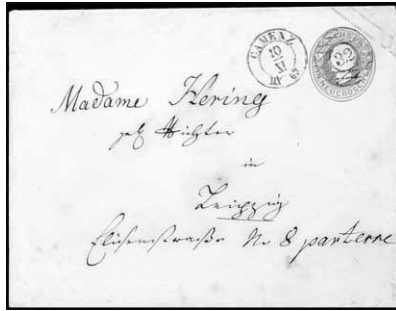 CAMENZ
10
XI
32
Madame Hering
geb Richter
in
Leipzig
Elisenstraße No 8 parterre